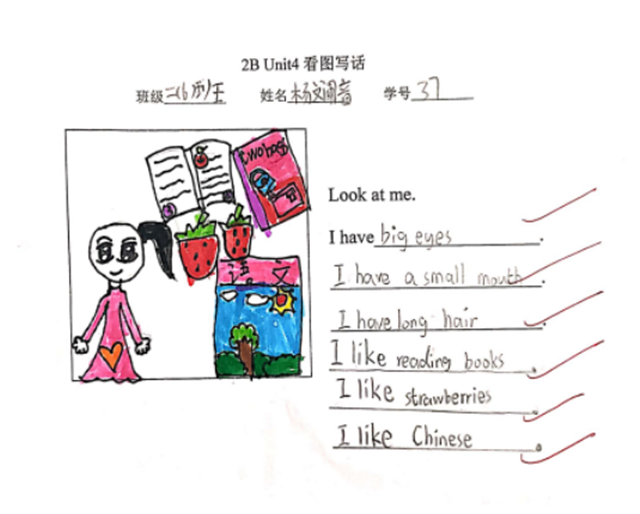 2B Unit4 看图写话
班级 二(6)班 姓名 杨文闻音 学号 37
two bags
语文
Look at me.
I have big eyes.
I have a small mouth.
I have long hair.
I like reading books.
I like strawberries.
I like Chinese.